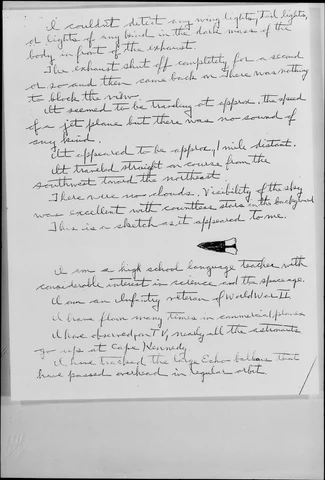 I couldn't detect any wing lights, tail lights,
or lights of any kind in the dark mass of the
body in front of the exhaust.
The exhaust shut off completely for a second
or so and then came back on. There was nothing
to block the view.
It seemed to be traveling at approx. the speed
of a jet plane but there was no sound of
any kind.
It appeared to be approx 1 mile distant.
It traveled straight on course from the
southwest toward the northeast.
There were no clouds. Visibility of the sky
was excellent with countless stars in the background
This is a sketch as it appeared to me.
I am a high school language teacher with
considerable interest in science and the space age.
I am an Infantry veteran of World War II
I have flown many times in commercial planes
I have observed, on TV, nearly all the astronauts
go up at Cape Kennedy
I have tracked the large Echo balloon that
have passed overhead in regular orbit